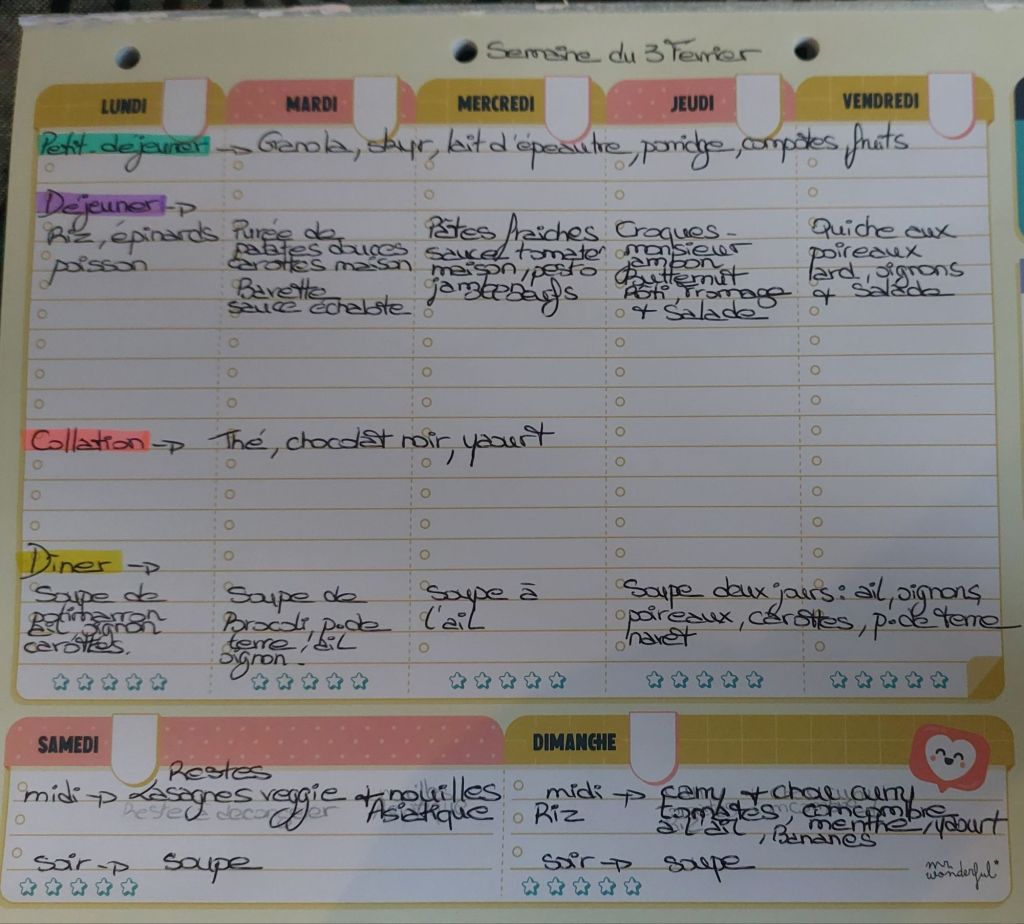 Semaine du 3 Février
LUNDI
MARDI
MERCREDI
JEUDI
VENDREDI
Petit-déjeuner → Granola, skyr, lait d'épeautre, porridge, compotes, fruits
Déjeuner →
Riz, épinards
poisson
Purée de
patates douces
carottes maison
Bavette
sauce échalote
Pâtes fraiches
sauce tomate
maison, pesto
Croques-
monsieur
jambon
Butternut
rôti, fromage
+ Salade
Quiche aux
poireaux
lard, oignons
+ Salade
Collation → Thé, chocolat noir, yaourt
Diner →
Soupe de
potimarron
ail, oignon
carottes.
Soupe de
Brocoli, p.de
terre, ail
oignon.
Soupe à
l'ail
Soupe deux jours : ail, oignons,
poireaux, carottes, p.de terre
navet
SAMEDI
Restes
midi → Lasagnes veggie + nouilles
Asiatique
soir → soupe
DIMANCHE
midi → curry
Riz tomates, concombre
à l'ail, menthe, yaourt
, Bananes
soir → soupe
mr wonderful*